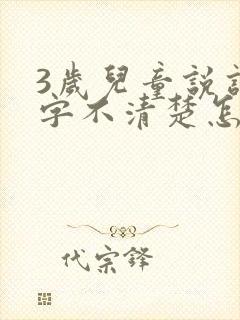 3歲兒童說
字不清楚怎
代宗鋒